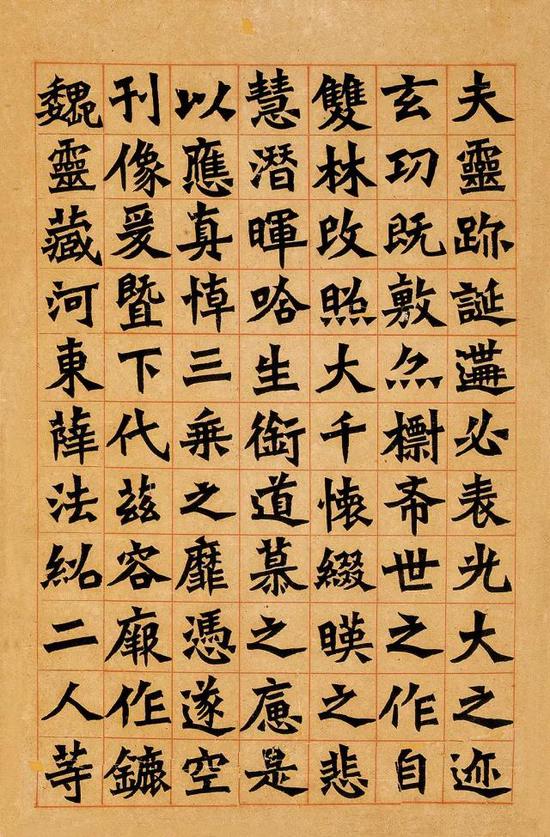 夫靈跡誕遘必表光大之迹
玄功既敷亦標希世之作自
雙林改照大千懷綴暎之悲
慧潛暉唅生銜道慕之是
以應真悼三乘之靡憑遂空
刊像爰暨下代茲容厥作鏕
魏靈藏河東薛法紹二人等